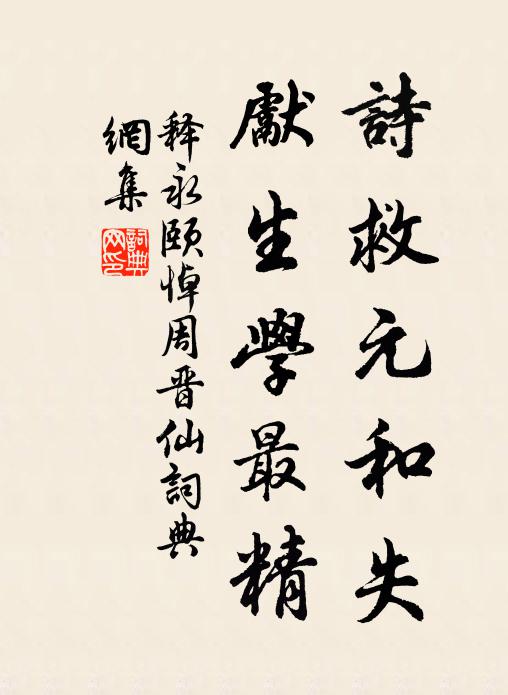 詩救元和失
獻生學最精
释永颐悼周晋仙詞典
網集
詞典網印